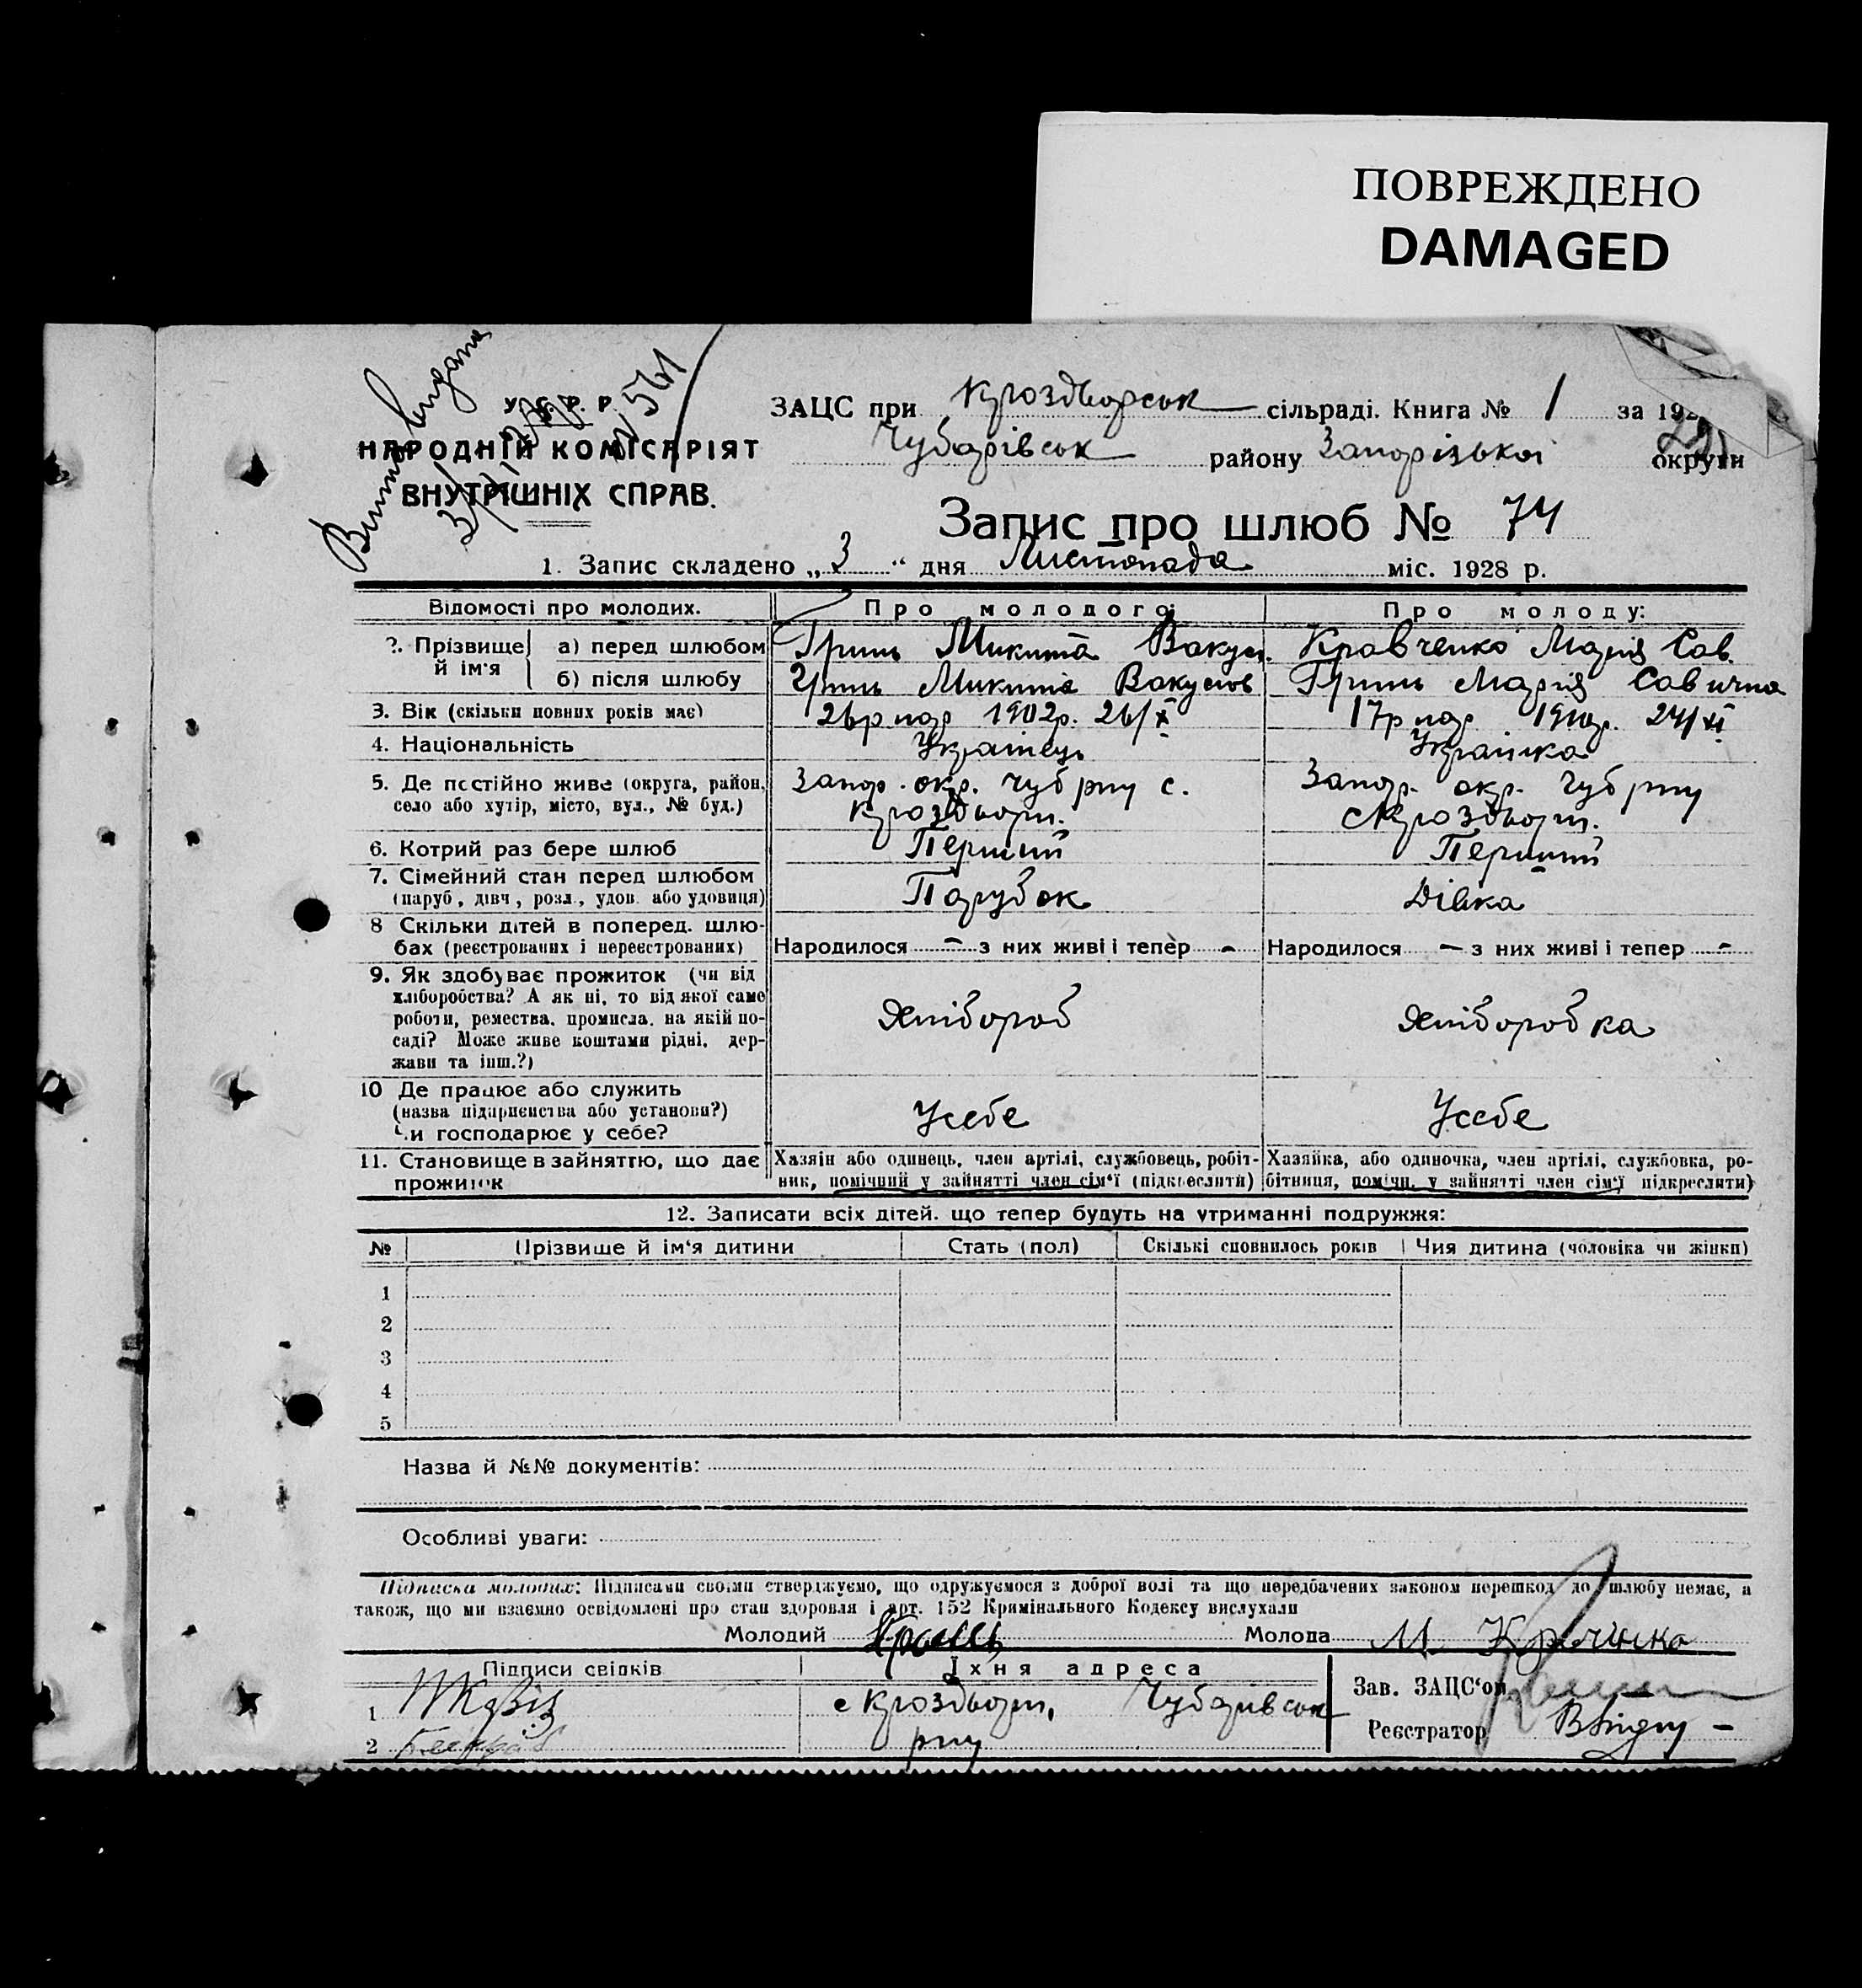 ПОВРЕЖДЕНО
DAMAGED
У. С. Р. Р.
НАРОДНІЙ КОМІСАРІЯТ
ВНУТРІШНІХ СПРАВ.
ЗАЦС при Кроздворськ сільраді. Книга № 1 за 192
Чубарівськ району Запорізької округи
Запис про шлюб № 74
1. Запис складено „3“ дня Листопада міс. 1928 р.
Відомості про молодих. Про молодого: Про молоду:
2. Прізвище й ім'я а) перед шлюбом Гринь Микита Вакул. Кравченко Марія Сав.
б) після шлюбу Гринь Микита Вакулов Гринь Марія Савична
3. Вік (скільки повних років має) 26 р нар 1902р. 26/X 17р нар 1910р. 24/XI
4. Національність Українець Українка
5. Де постійно живе (округа, район, село або хутір, місто, вул., № буд.) Запор. окр. Чуб рну с. Кроздворп. Запор. окр. Чуб рну с Кроздворп.
6. Котрий раз бере шлюб Перший Перший
7. Сімейний стан перед шлюбом (паруб., дівч., розл., удов. або удовиця) Парубок Дівка
8 Скільки дітей в поперед. шлюбах (реєстрованих і нереєстрованих) Народилося – з них живі і тепер - Народилося – з них живі і тепер -
9. Як здобуває прожиток (чи від хліборобства? А як ні, то від якої саме роботи, ремества, промисла, на якій посаді? Може живе коштами рідні, держави та інш.?) Хлібороб Хлібороб ка
10 Де працює або служить (назва підприємства або установи?) Чи господарює у себе? Усебе Усебе
11. Становище в зайняттю, що дає прожиток Хазяін або одинець, член артілі, службовець, робітник, помічний у зайнятті член сім'ї (підкреслити) Хазяйка, або одиночка, член артілі, службовка, робітниця, помічн. у зайнятті член сім'ї підкреслити)
12. Записати всіх дітей, що тепер будуть на утриманні подружжя:
№ Прізвище й ім'я дитини Стать (пол) Скількі сповнилось років Чия дитина (чоловіка чи жінки)
1
2
3
4
5
Назва й №№ документів:
Особливі уваги:
Підписка молодих: Підписами своїми стверджуємо, що одружуємося з доброї волі та що передбачених законом перешкод до шлюбу немає, а
також, що ми взаємно освідомлені про стан здоровля і арт. 152 Кримінального Кодексу вислухали
Молодий Молода М Кравчінко
Підписи свідків Їхня адреса Зав. ЗАЦС'ом
1 с Кроздворп, Чубарівськ
2 рну Реєстратор